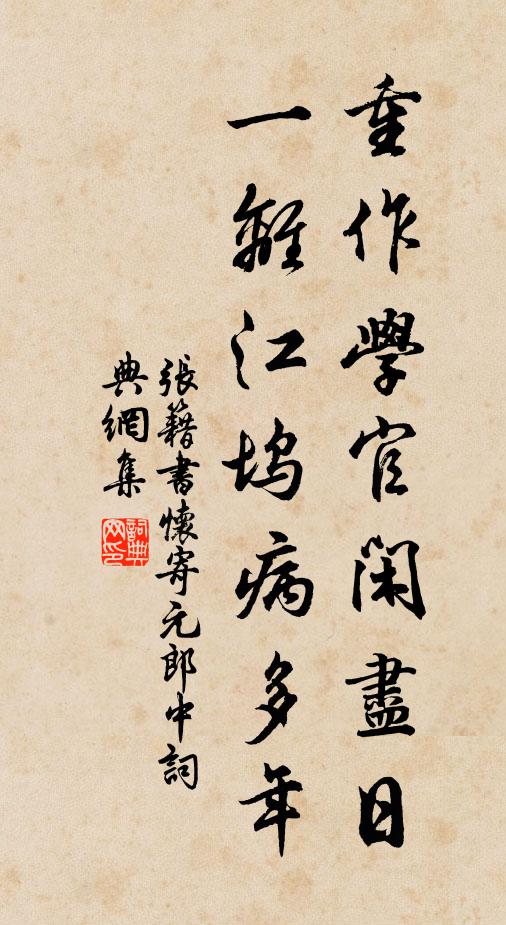 重作學官閑盡日
一離江塢病多年
張籍書懷寄元郎中詞
典網集
詞典
网印